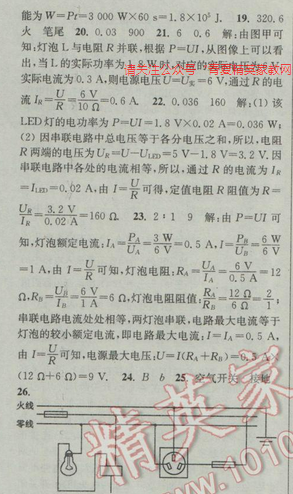 能为 W=Pt=3 000 W×60 s=1.8×10⁵ J. 19. 320.6
火 笔尾 20. 0.03 900 21. 6 0.6 解:由图甲可
知,灯泡 L 与电阻 R 并联,根据 P=UI,从图像上可以看
出,当 L 的实际功率为 1.8 W 时,对应的实际电压为 6 V,
实际电流为 0.3 A,则电源电压 U=U实=6 V,通过 R 的电
流 I_R=U/R=6 V/10 Ω=0.6 A. 22. 0.036 160 解:(1)该
LED灯的电功率为 P=UI=1.8 V×0.02 A=0.036 W;
(2) 因串联电路中总电压等于各分电压之和,所以,电阻
R 两端的电压为 U_R=U−U_LED=5 V−1.8 V=3.2 V.因
串联电路中各处的电流相等,所以,通过 R 的电流为 I_R
=I_LED=0.02 A,由 I=U/R可得,定值电阻 R 阻值为 R=
U_R/I_R=3.2 V/0.02 A=160 Ω. 23. 2∶1 9 解:由 P=UI 可
知,灯泡额定电流:I_A=P_A/U_A=3 W/6 V=0.5 A,I_B=P_B/U_B=6 W/6 V
=1 A,由 I=U/R可知,灯泡电阻:R_A=U_A/I_A=6 V/0.5 A=12
Ω,R_B=U_B/I_B=6 V/1 A=6 Ω,灯泡电阻阻值:R_A/R_B=12 Ω/6 Ω=2/1;
串联电路电流处处相等,两灯泡串联,电路最大电流等于
灯泡的较小额定电流,即电路最大电流:I=I_A=0.5 A,
由 I=U/R可知,电源最大电压:U=I(R_A+R_B)=0.5 A×
(12 Ω+6 Ω)=9 V. 24. B b 25. 空气开关 接地
26.
火线
零线
精英家教